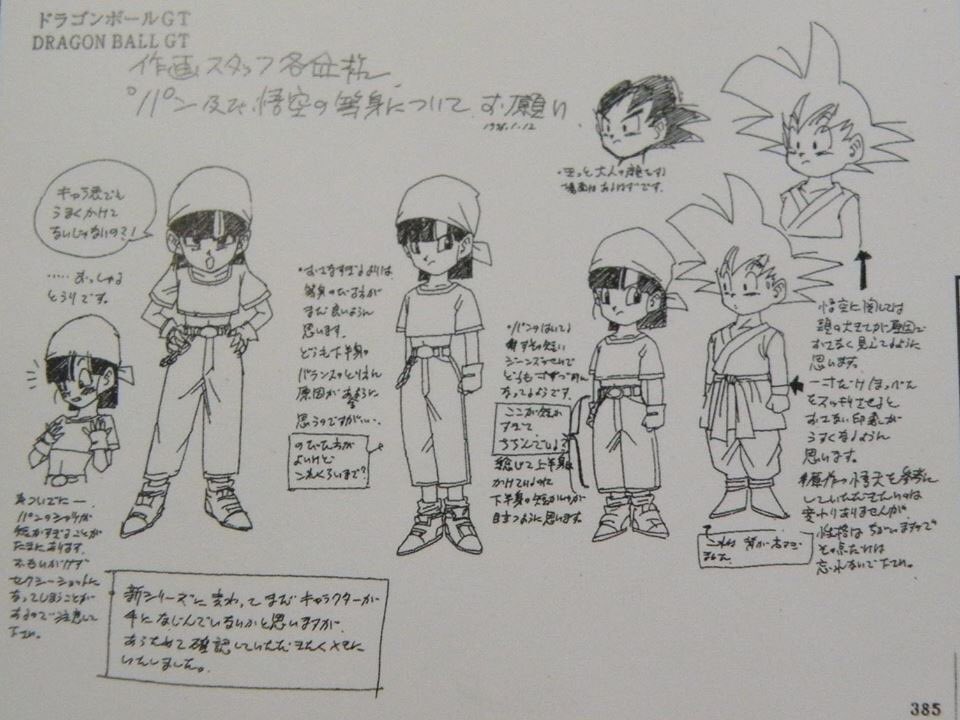 ドラゴンボールGT
DRAGON BALL GT
作画スタッフ各位様
パン及び悟空の等身について お願い
1996.1.12
キャラ表でも
うまくかけて
ないじゃないの?!
……おっしゃる
とうりです。
・もっと大人の顔です
・おさなすぎるよりは
等身のびるほうが
まだ良いように
思います。
どうも下半身の
バランスのとりかた
原因があるように
思うのですが…。
のびた方が
よいけど
これくらいまで?
・パンのはいてる
ジーンズのせいで
どうも
なってしまうようです。
ここが短か
すぎて
総じて上半身
かけているのに
下半身の短かさが
目立つように思います。
悟空に関しては
頭の大きさが原因で
おさなく見えてるように
思います。
をスッキリさせると
おさない印象が
うすくなるように
思います。
※原作の悟天を参考に
していただきたいのは
変わりありませんが、
性格はちがいますので
その点だけは
忘れないで下さい。
これは 背が高すぎ
ました
※ついでに—
パンのシャツが
短かすぎることが
たまにあります。
おもいがけず
セクシーショットに
なってしまうことが
あるので注意して
下さい。
新シリーズに変わってまだキャラクターが
手になじんでいないかと思いますが、
あらためて確認していただきたくさせて
いたしました。
385